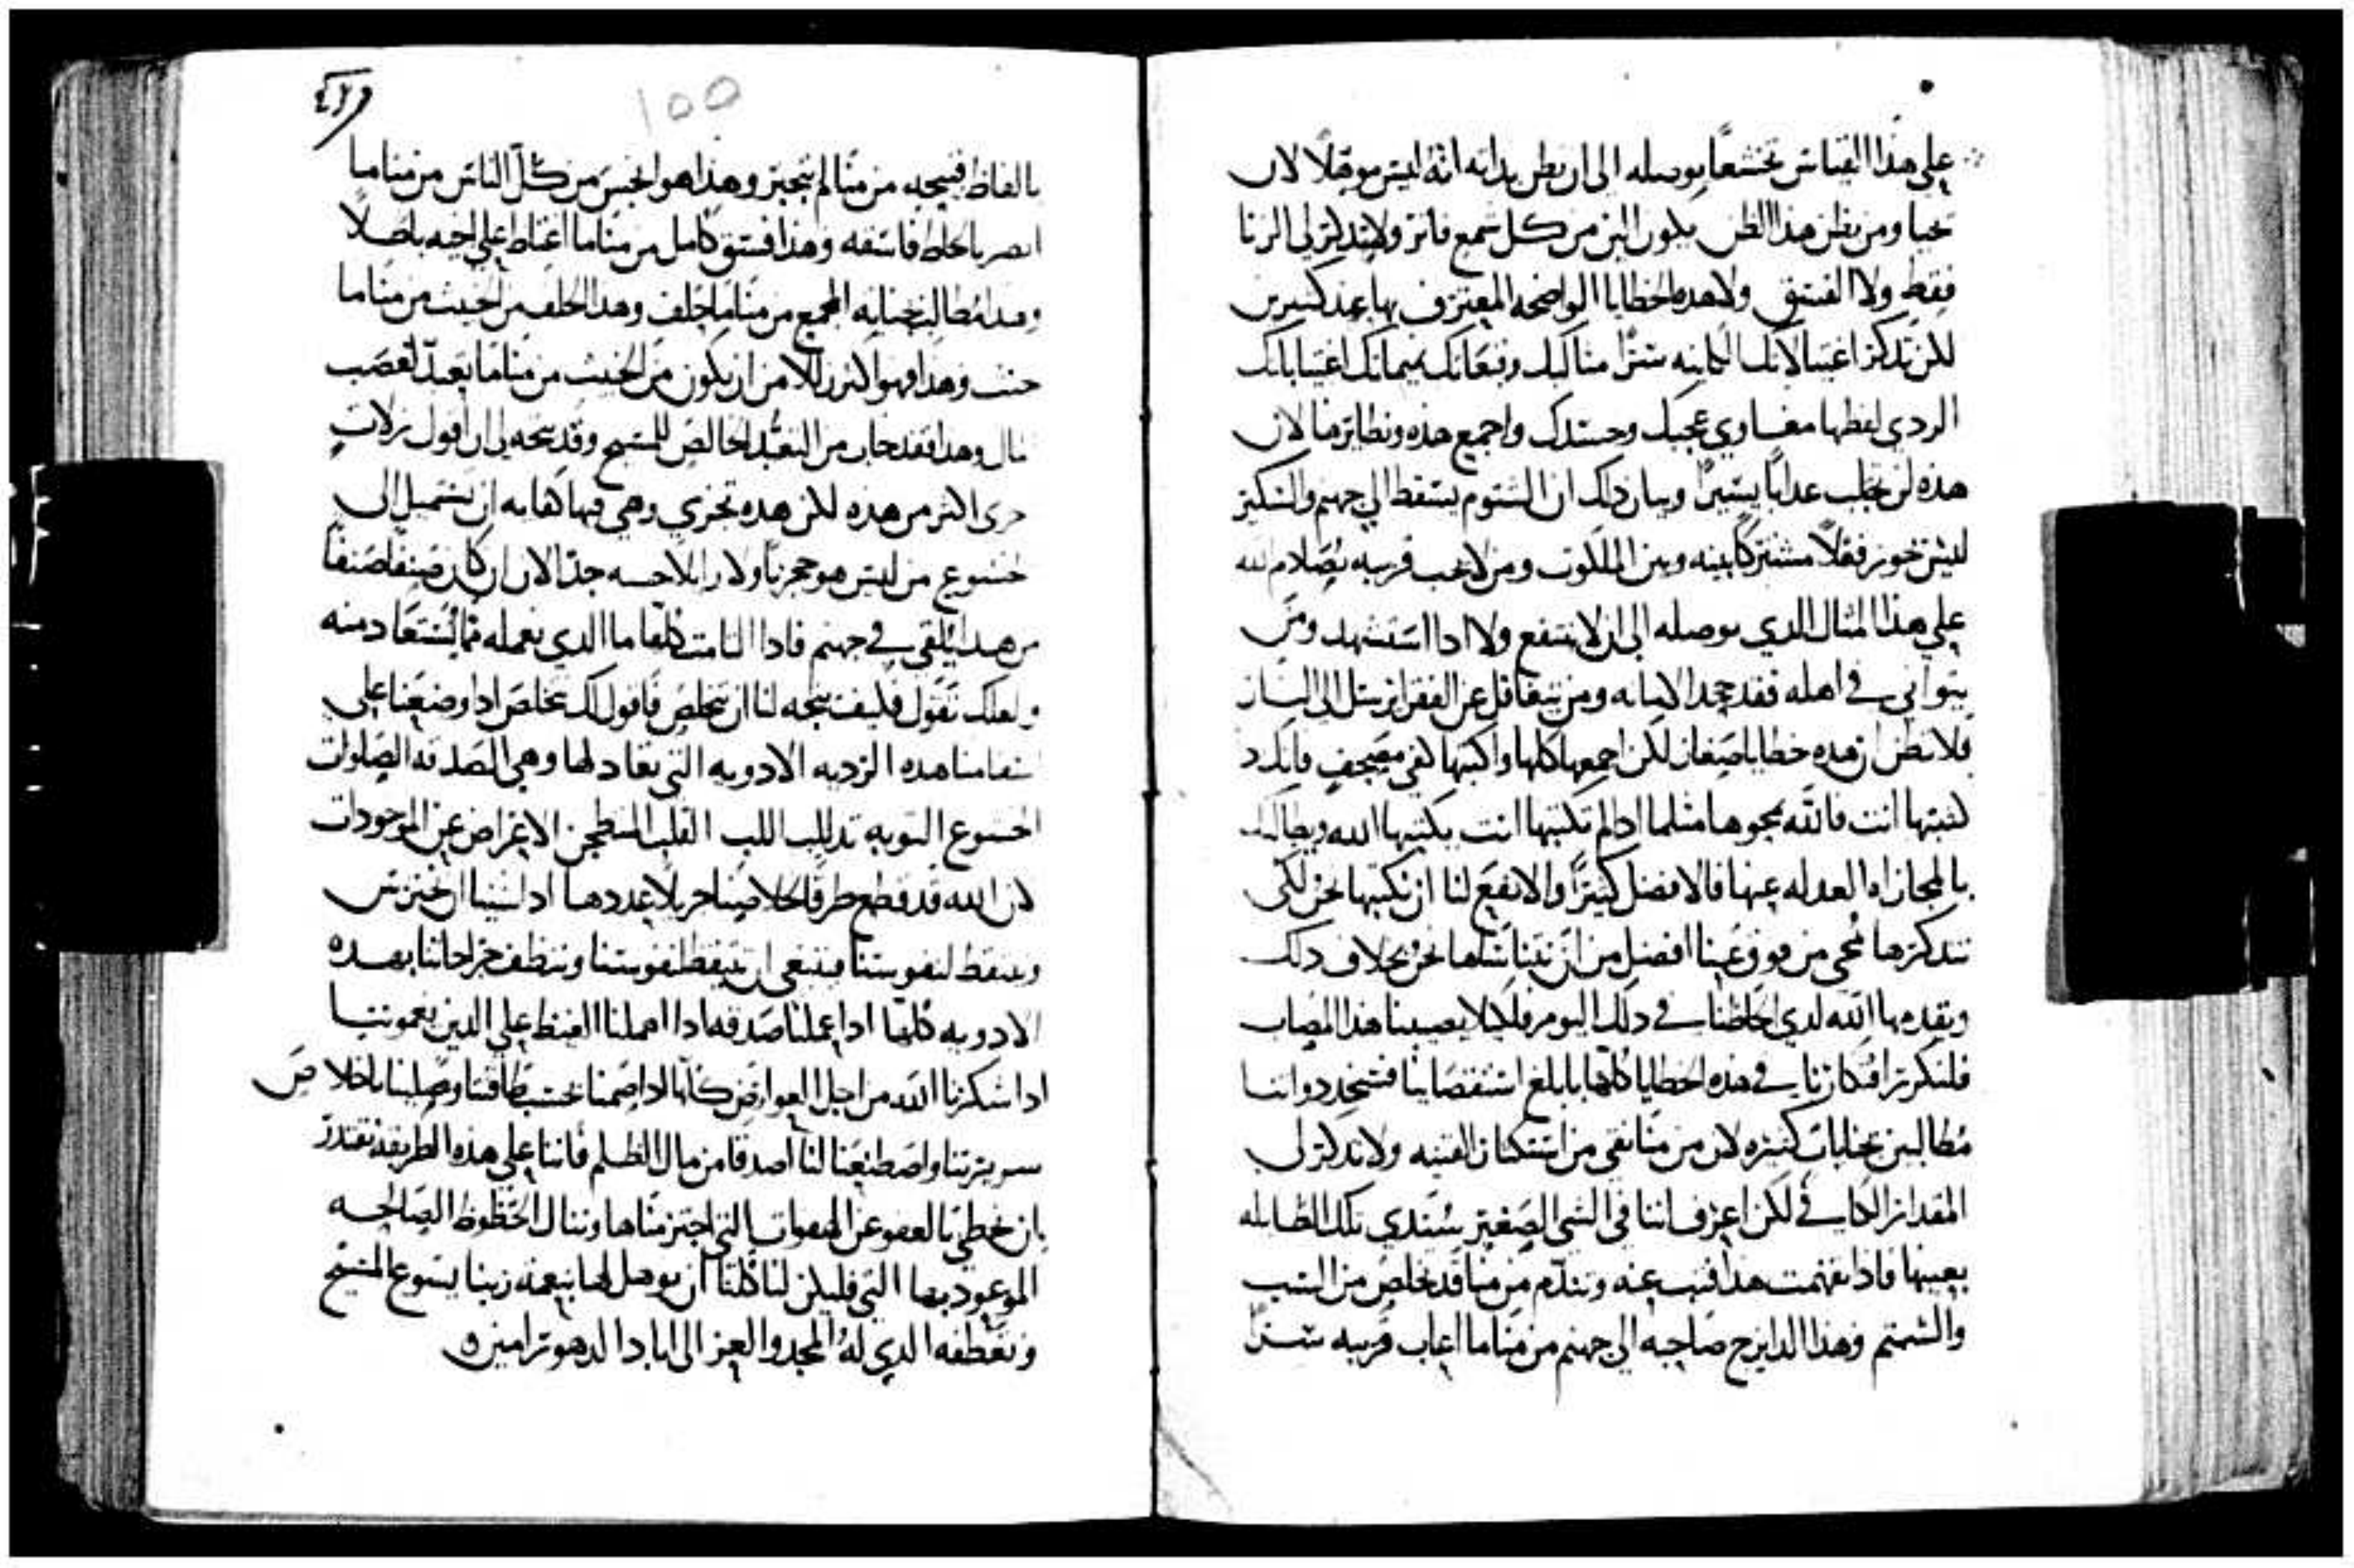 علي هذا القياس تخشعاً يوصله الى ان يظن بداته انه ليس موقلاً لان
تحيا ومن يظن هذا الظن يكون الين من كل شمع فاتر ولا تتدكر لي الزنا
فقط ولا الفسق ولا هده الخطايا الواضحه المعترف بها عند كثيرين
لكن تدكر اغتيالاتك الكاينه سرًا مثالبك وقعاتك نيماتك اغتياباتك
الردي لفظها مغساوي عجبك وحسدك واجمع هذه ونظايرها لان
هده لن تجلب عداباً يسيراً وبيان دلك ان الشتوم يسقط الي جهنم والسكير
ليس تخور فقلاً مشتركاً بينه وبين الملكوت ومن لا يحب قريبه يصلام لله
علي هذا المثال الدي يوصله الى ان لا ينتفع ولا ادا استشهد ومن
يتواني في اهله فقد جحد الامانه ومن يتغافل عن الفقرا يرسل الى النار
فلا تظن ان هده خطايا صغار لكن اجمعها كلها واكتبها كفي مصحف فانك اد
كتبتها انت فالله يمحوها مثلما اد لم تكتبها انت يكتبها الله ويطالبك
بالمجازاه العدله عنها فالافضل كثيراً والانفع لنا ان نكتبها نحن لكى
نتدكرها تمحى من فوق عنا افضل من ان نتناساها نحن بخلاف دلك
ويقدمها الله لدى لحاظنا في دلك اليوم فلكيلا يصيبنا هذا المصاب
فلنكرر افتكارنا في هده الخطايا كلها بابلغ استقصاينا فسنجد دواتنا
مطالبين بجنايات كثيره لان من منا نقي من استكثار القنيه ولا تدكر لي
المقدار الكافي لكن اعرف اننا في الشي الصغير سندي تلك الطايله
بعينها فادا تفهمت هدا فتب عنه وتندم من منا قد تخلص من السب
والشتم وهذا الدا يزج صاحبه الي جهنم من منا ما اعاب قريبه سرًا
١٥٥
بالفاظ قبيحه من منا لم يتجبر وهذا هو انجس من كل الناس من منا ما
ابصر بالحاظ فاسقه وهذا فسق كامل من منا ما اغتاظ علي اخيه باطلاً
وهذا مطالب بجنايه المجمع من منا ما حلف وهذا الحلف من الخبيث من منا ما
حنث وهدا فهو اكثر الامر ان يكون من الخبيث من منا ما يعبد لعصب
مال وهدا فقد خاب من التعبد الخالص للمسيح وقد يتجه لي ان اقول زلات
خرى اكثر من هده لكن هده تجزي وهي فيها كفايه ان تستميل الى
خشوع من ليس هو حجرياً ولا زايلاً حسه جدًا لان ان كان صنفاً صنفاً
من هدا يُلقي في جهنم فادا التامت كلها ما الدي تعمله مما يُستعاد منه
ولعلك تقول فكيف يتجه لنا ان نتخلص فاقول لك نتخلص ادا وضعنا علي
اسقامنا هده الرديه الادويه التي تعادلها وهي الصدقه الصلوات
الخشوع التوبه تدلل اللب القلب المنطحن الاعراض عن الموجودات
لان الله قد قطع طرقاً لخلاصنا جزيلاً عددها ادا شينا ان نحترس
ونتيقظ لنفوسنا فينبغي ان نتيقظ لنفوسنا وننظف جراحاتنا بهده
الادويه كلها ادا عملنا صدقه ادا اهملنا الغيظ علي الدين يغموننا
ادا شكرنا الله من اجل العوارض كلها ادا صمنا بحسب طاقتنا وصلينا باخلاص
سريرتنا واصطنعنا لنا اصدقا من مال الظلم فاننا علي هذه الطريقه نقتدر
بان نحظي بالعفو عن الهفوات التي اجترمناها وننال الحظوظ الصالحه
الموعود بها التي فليكن لنا كلنا ان نوهل لها بنعمه ربنا يسوع المسيح
وتعطفه الدي له المجد والعز الى اباد الدهور امين ه